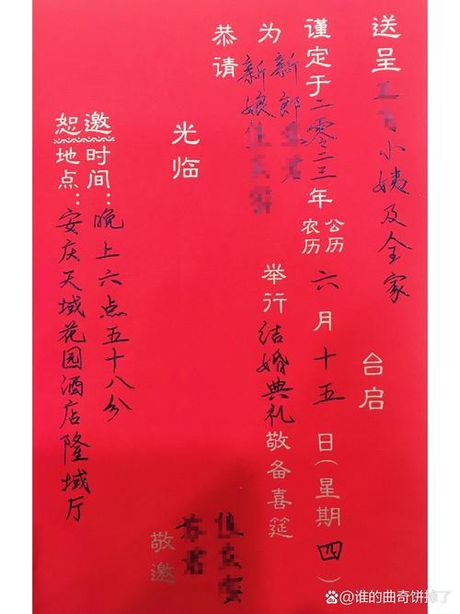 送呈 小姨及全家 台启
谨定于二零二三年 公历 农历 六月十五日(星期四)
为 新郎 新娘 举行结婚典礼敬备喜筵
恭请
光临
敬邀
邀时间:晚上六点五十八分
恕地点:安庆天域花园酒店隆域厅
@谁的曲奇饼掉了